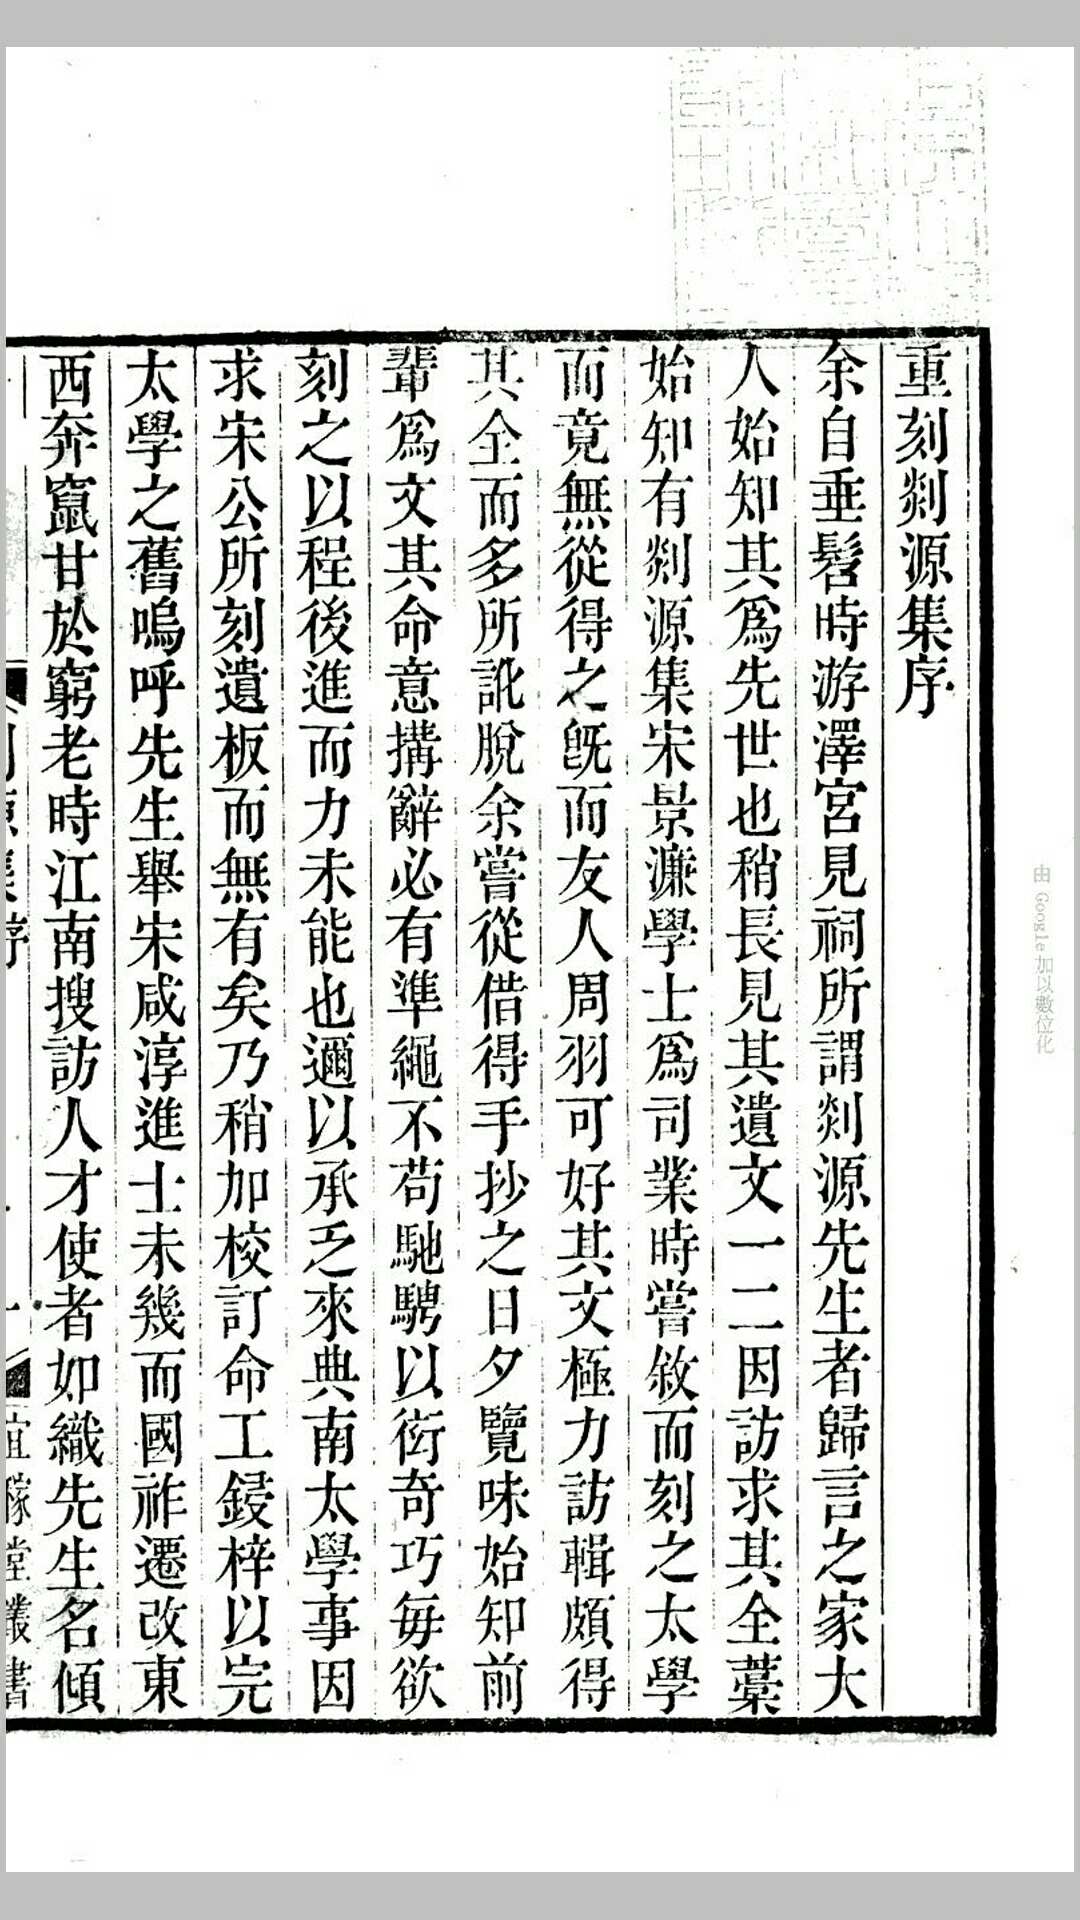 重刻剡源集序
余自垂髫時游澤宮見祠所謂剡源先生者歸言之家大
人始知其爲先世也稍長見其遺文一二因訪求其全藁
始知有剡源集宋景濂學士爲司業時嘗敘而刻之太學
而竟無從得之旣而友人周羽可好其文極力訪輯頗得
其全而多所訛脫余嘗從借得手抄之日夕覽味始知前
輩爲文其命意搆辭必有準繩不苟馳騁以衒奇巧每欲
刻之以程後進而力未能也邇以承乏來典南太學事因
求宋公所刻遺板而無有矣乃稍加校訂命工鋟梓以完
太學之舊嗚呼先生舉宋咸淳進士未幾而國祚遷改東
西奔竄甘於窮老時江南搜訪人才使者如織先生名傾
宜稼堂叢書
由 Google 加以數位化